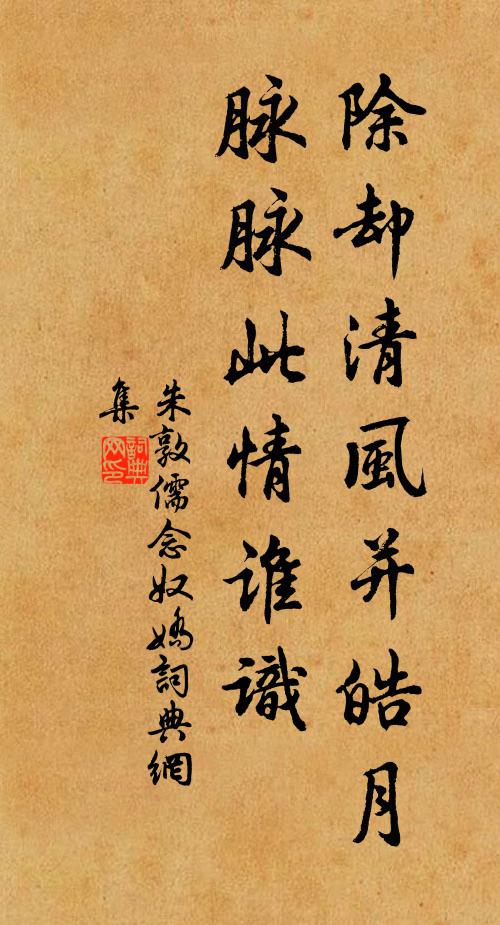 除却清風并皓月
脉脉此情誰識
朱敦儒念奴嬌詞典網
集
詞典網印